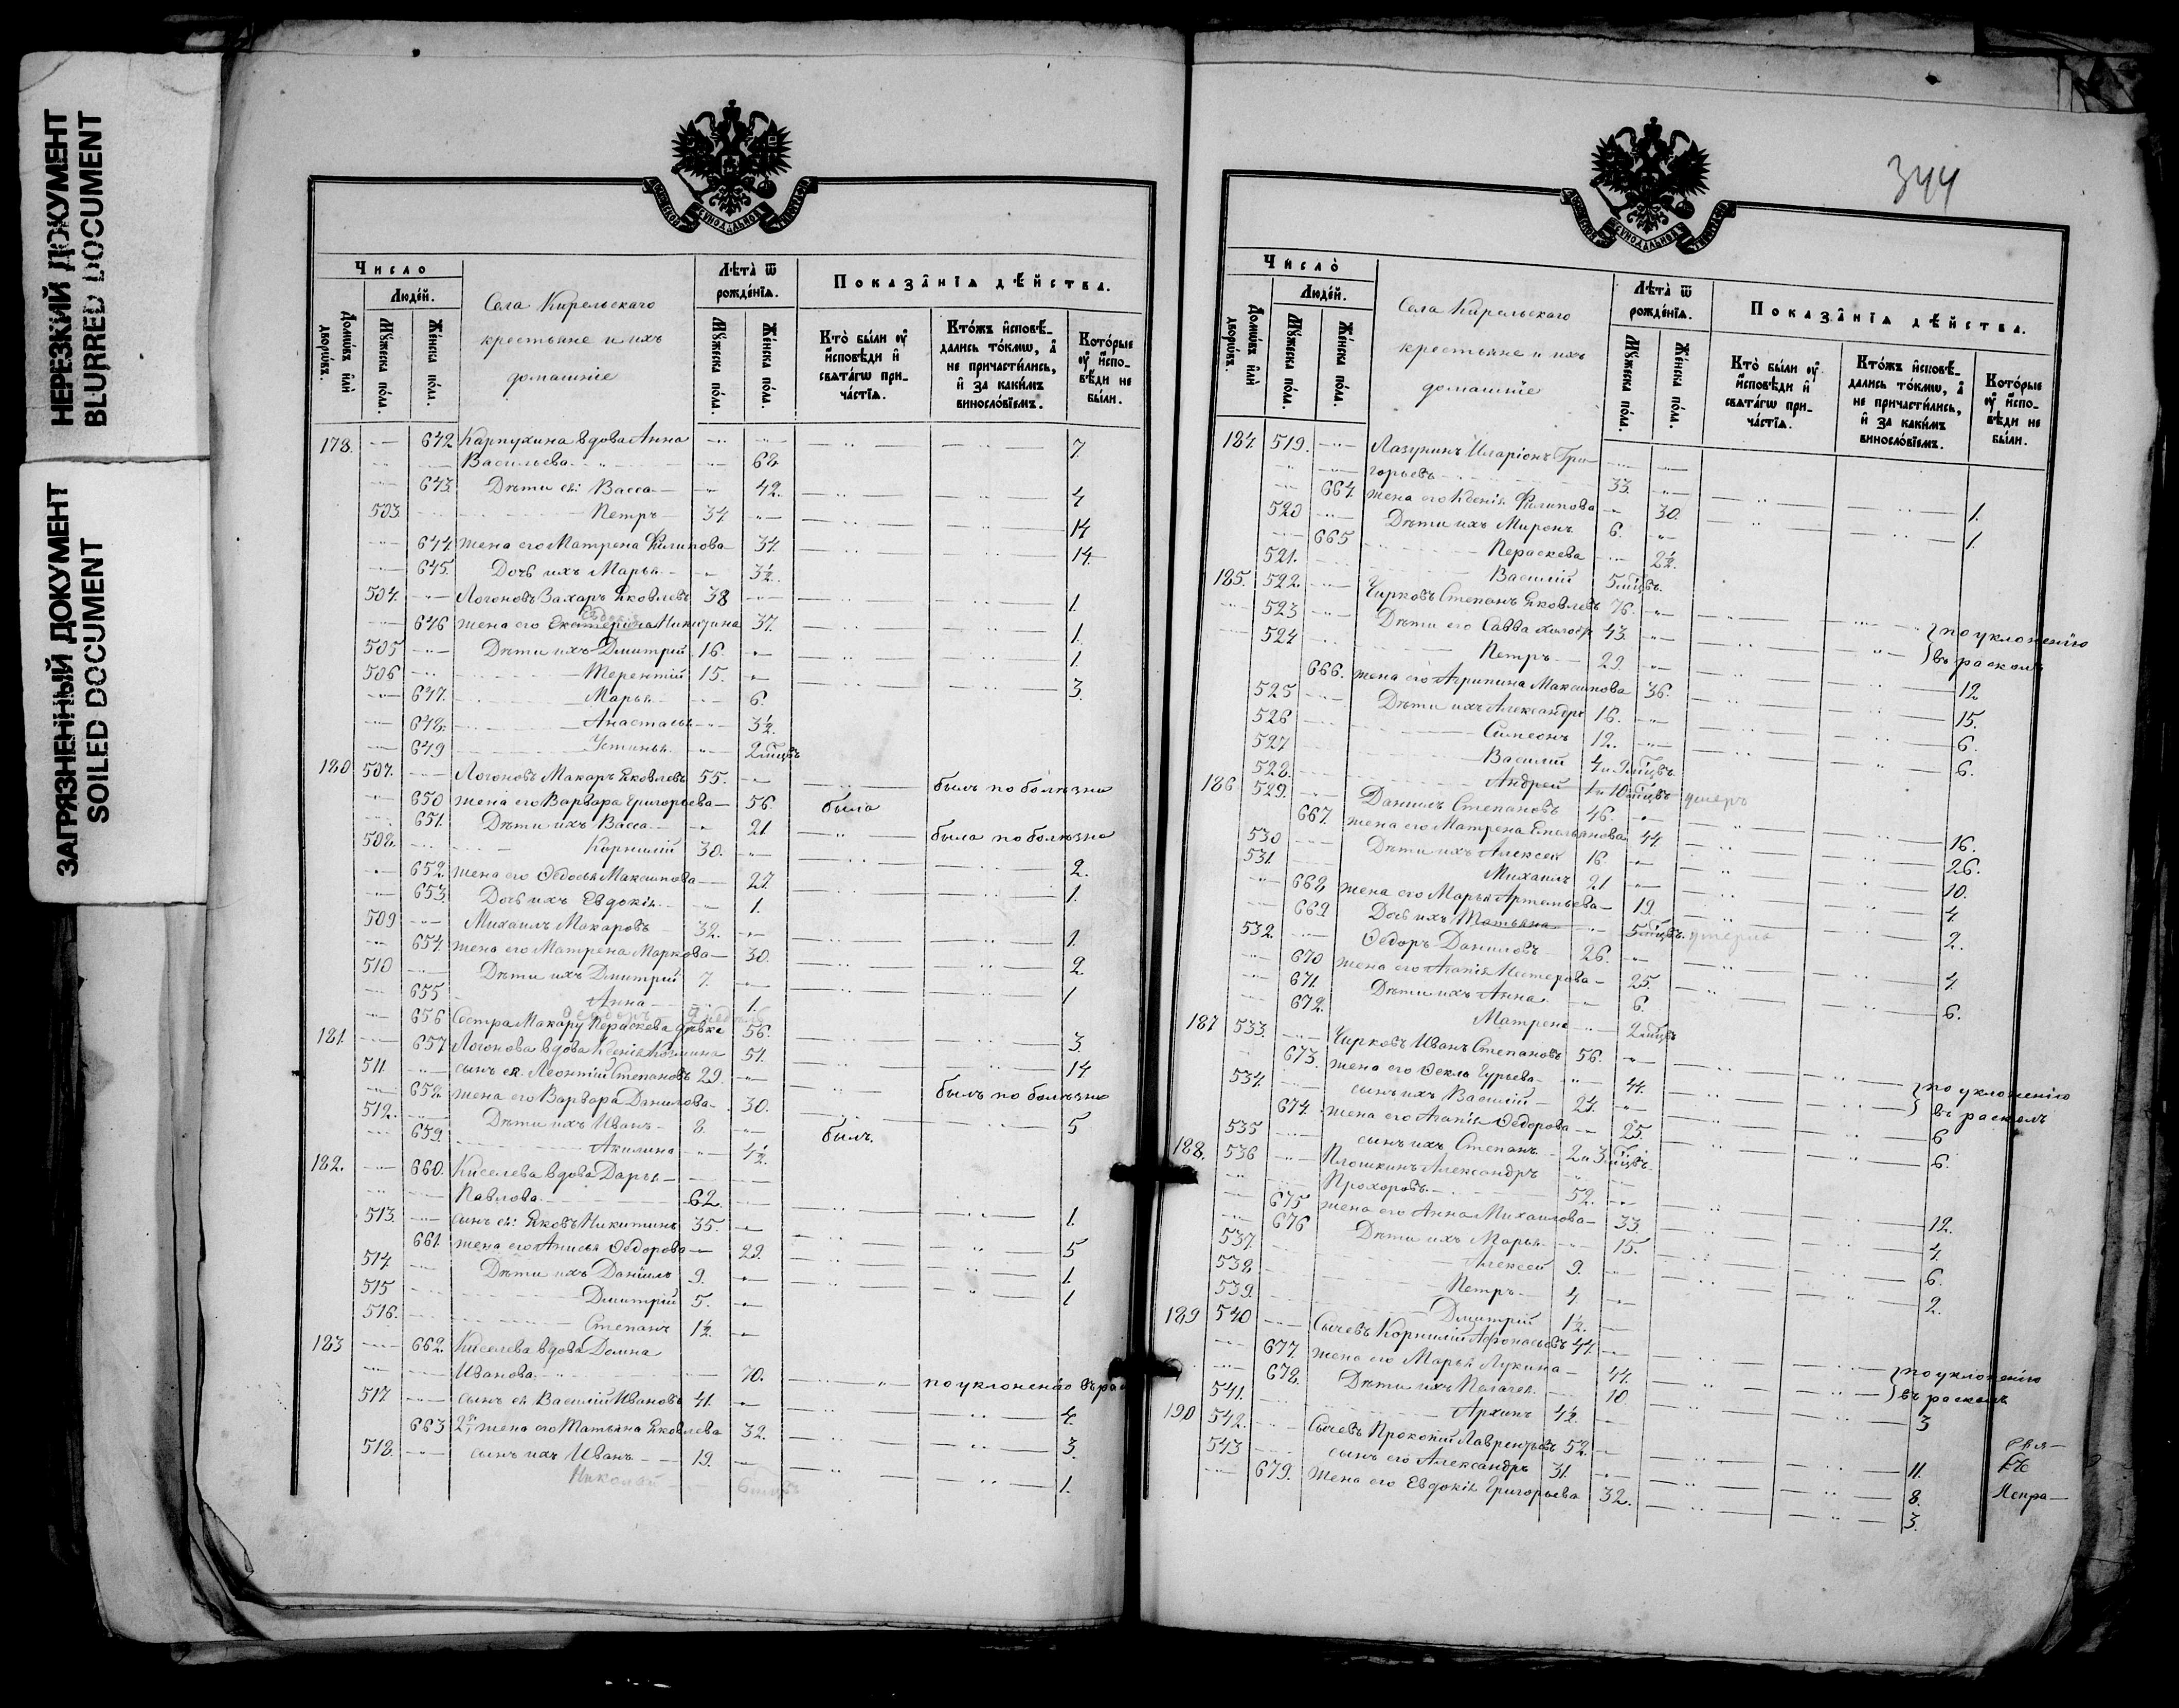 НЕРЕЗКИЙ ДОКУМЕНТ
BLURRED DOCUMENT
ЗАГРЯЗНЕННЫЙ ДОКУМЕНТ
SOILED DOCUMENT
Число
Людей.
Домѡвъ или дворѡвъ.
Мꙋжеска пола.
Женска пола.
Села Кирельскаго
крестьяне и ихъ
домашніе
Лѣта ѿ рожденїѧ.
Мꙋжеска пола.
Женска пола.
Показанїѧ дѣйства.
Кто были ᲂу҆ исповѣди и свѧтагѡ причастїѧ.
Ктожъ исповѣдались токмѡ, а не причастились, и за какимъ винословїемъ.
Которые ᲂу҆ исповѣди не были.
178. 642 Карпухина вдова Анна 7.
Васильева 68.
643. Дѣти ея: Васса 42. 4
503. Петръ 34. 14
644. жена его Матрена Филипова 34. 14.
645. Дочь ихъ Марья 3½.
504. Логоновъ Захаръ Яковлевъ 38 1.
646 жена его Екатерина Никитина 37. 1.
505 Дѣти ихъ Дмитрій 16. 1.
506 Терентій 15. 3.
647. Марья 6.
648. Анастасья 3½.
649 Устинья 2 мѣцъ
180 507. Логоновъ Макаръ Яковлевъ 55. былъ по болѣзни
650 жена его Варвара Григорьева 56. была
651. Дѣти ихъ Васса 21 была по болѣзни
508. Корнилій 30. 2.
652. жена его Ѳедосья Максимова 27. 1.
653. Дочь ихъ Евдокія 1.
509 Михаилъ Макаровъ 32. 1.
654. жена его Матрена Маркова 30. 2.
510 Дѣти ихъ Дмитрій 7. 1
655 Анна 1.
656 Сестра Макару Параскева дѣвка 56. 3.
181. 657 Логонова вдова Ксенія Козмина 51. 14
511 сынъ ея Леонтій Степановъ 29. былъ по болѣзни
658. жена его Варвара Данилова 30. 5
512. Дѣти ихъ Иванъ 8. былъ.
659. Акилина 4½.
182. 660. Киселева вдова Дарья
Павлова 62. 1.
513. сынъ ея: Яковъ Никитинъ 35. 5
661. жена его Анисья Ѳедорова 29. 1.
514. Дѣти ихъ Даніилъ 9. 1
515 Дмитрій 5.
516. Степанъ 1½.
183 662. Киселева вдова Домна
Иванова 70. по уклоненію въ ра
517 сынъ ея Василій Ивановъ 41. 4.
663 2я жена его Татьяна Яковлева 32. 3.
518. сынъ ихъ Иванъ 19. 1.
Николай
344
Число
Людей.
Домѡвъ или дворѡвъ.
Мꙋжеска пола.
Женска пола.
Села Кирельскаго
крестьяне и ихъ
домашніе
Лѣта ѿ рожденїѧ.
Мꙋжеска пола.
Женска пола.
Показанїѧ дѣйства.
Кто были ᲂу҆ исповѣди и свѧтагѡ причастїѧ.
Ктожъ исповѣдались токмѡ, а не причастились, и за какимъ винословїемъ.
Которые ᲂу҆ исповѣди не были.
184. 519. Лазукинъ Иларіонъ Гри-
горьевъ 33. 1.
664. жена его Ксенія Филипова 30. 1.
520 Дѣти ихъ Миронъ 6.
665 Пераскева 2½.
521. Василій 5 мѣцъ.
185. 522. Чирковъ Степанъ Яковлевъ 76. по уклоненію
523 Дѣти его Савва холостъ 43. въ расколъ
524 Петръ 29. 12
666. жена его Агрипина Максимова 36. 15.
525 Дѣти ихъ Александръ 16. 6.
526 Симеонъ 12. 6.
527 Василій 4 и 9 мѣцъ.
528. Андрей 1 и 10 мѣцъ умеръ
186 529. Даниилъ Степановъ 46. 16.
667. жена его Матрена Емельянова 44 26.
530 Дѣти ихъ Алексей 16. 10.
531. Михаилъ 21 4.
668 жена его Марья Артемьева 19. 2.
669 Дочь ихъ Татьяна 5 мѣцъ. умерла
532. Ѳедоръ Даниловъ 26. 4.
670 жена его Агапія Нестерова 25. 6.
671. Дѣти ихъ Анна 6.
672. Матрена 2 мѣцъ
187 533. Чирковъ Иванъ Степановъ 56. по уклоненію
673. жена его Ѳекла Гурьева 44. въ расколъ
534. сынъ ихъ Василій 24. 6
674. жена его Агапія Ѳедорова 25. 6.
535 сынъ ихъ Степанъ 2 и 3 мѣцъ.
188. 536 Плошкинъ Александръ
Прохоровъ 52. 12.
675 жена его Анна Михаилова 33 4.
676 Дѣти ихъ Марья 15. 6.
537. Алексей 9. 2.
538 Петръ 4.
539. Дмитрій 1½.
189 540 Сычевъ Корнилій Афонасьевъ 44. по уклоненію
677. жена его Марья Лукина 44. въ расколъ
678. Дѣти ихъ Пелагея 10. 3
541. Архипъ 4½.
190 542. Сычевъ Прокопій Лаврентьевъ 52. 11.
543 сынъ его Александръ 31. 8.
679. жена его Евдокія Григорьева 32. 3.